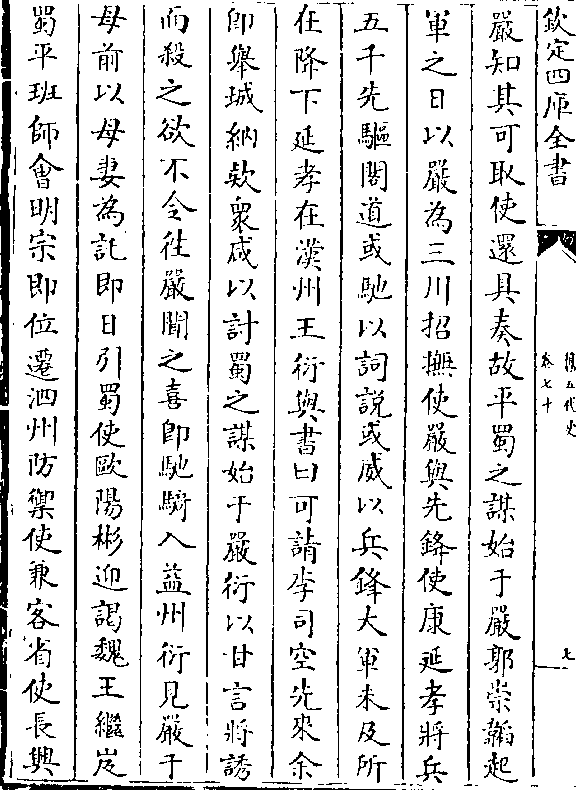 欽定四庫全書
舊五代史
卷七十
七
嚴知其可取使還具奏故平蜀之謀始于嚴郭崇韜起
軍之日以嚴為三川招撫使嚴與先鋒使康延孝將兵
五千先驅閣道或馳以詞說或威以兵鋒大軍未及所
在降下延孝在漢州王衍與書曰可請李司空先來余
即舉城納欵衆咸以討蜀之謀始于嚴衍以甘言將誘
而殺之欲不令往嚴聞之喜即馳騎入益州衍見嚴于
母前以母妻為託即日引蜀使歐陽彬迎謁魏王繼岌
蜀平班師會明宗即位遷泗州防禦使兼客省使長興